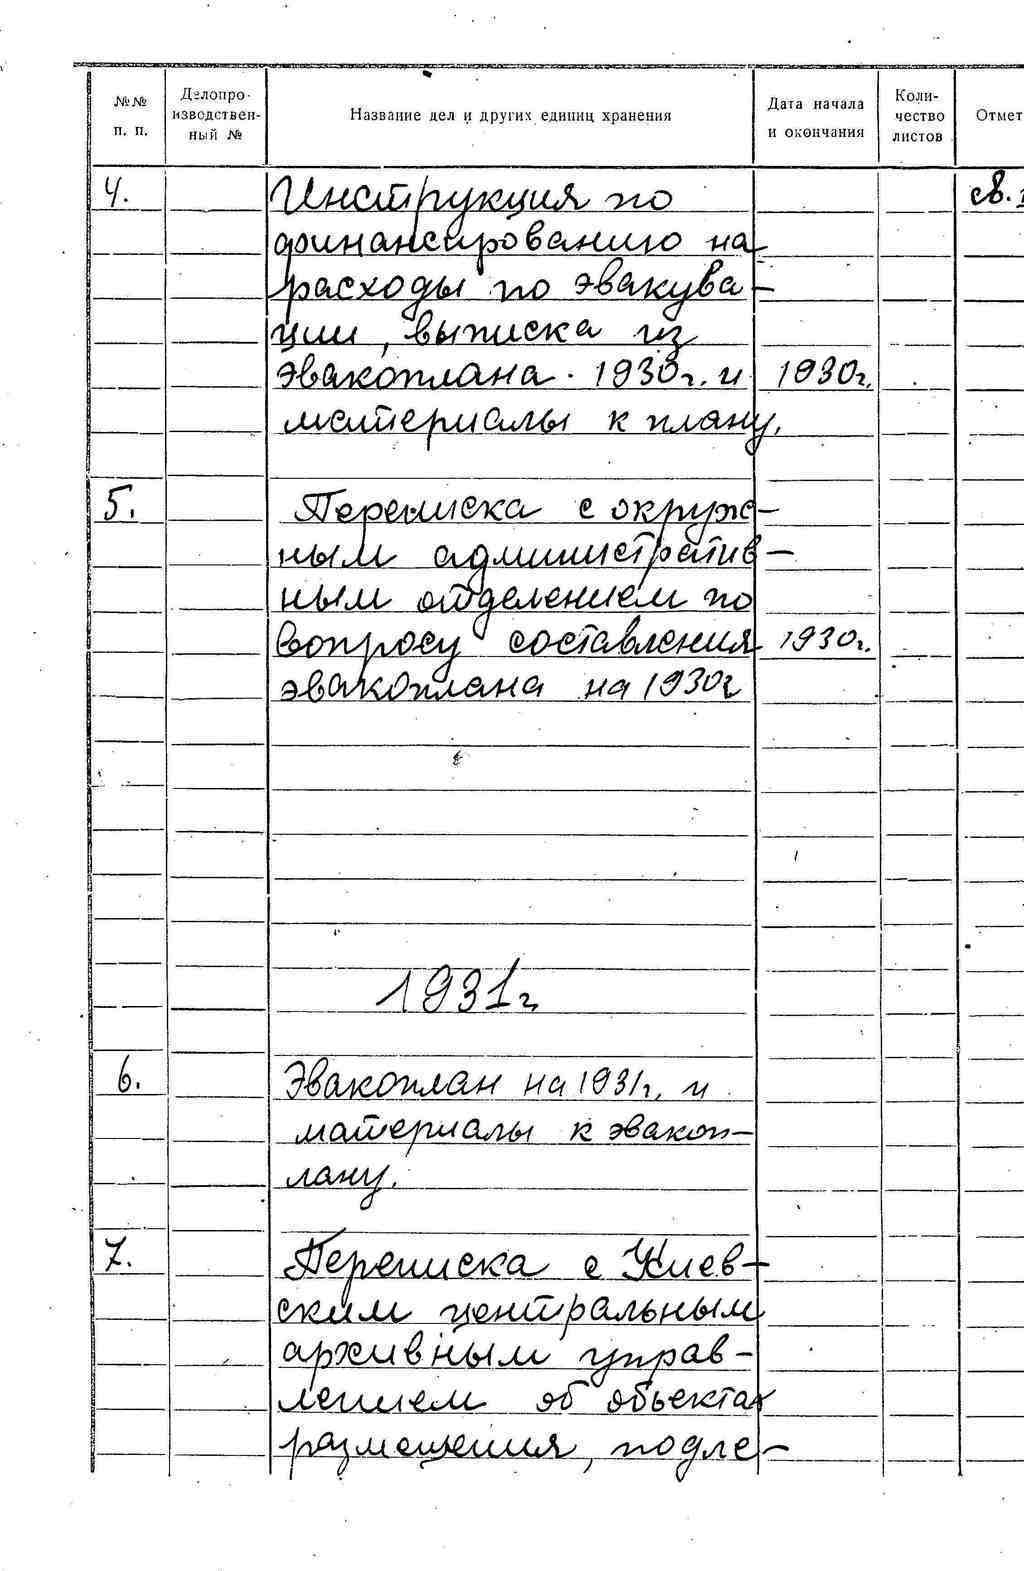 №№ п. п. Делопро- изводствен- ный № Название дел и других единиц хранения Дата начала и окончания Коли- чество листов Отмет
4. Инструкция по
финансированию на
расходы по эвакува-
ции, выписка из
эвакоплана 1930г. и 1930г.
материалы к плану.
5. Переписка с окруж-
ным административ-
ным отделением по
вопросу составления 1930г.
эвакоплана на 1930г
1931г
6. Эвакоплан на 1931г. и
материалы к эвакоп-
лану.
7. Переписка с Киев-
ским центральным
архивным управ-
лением об объектах
размещения, подле-